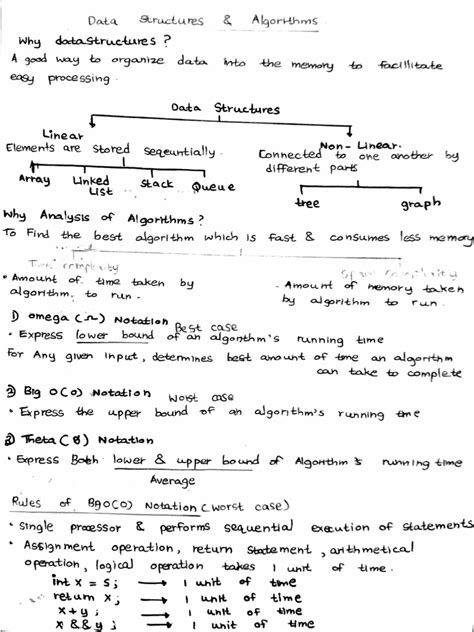 Data Structures & Algorithms
Why datastructures ?
A good way to organize data into the memory to facillitate
easy processing.
Data Structures
Linear
Elements are stored seqeuntially.
Non-Linear.
Connected to one another by
different parts
Array Linked List Stack Queue
tree graph
Why Analysis of Algorithms ?
To Find the best algorithm which is fast & consumes less memory
Time complexity
Space complexity
• Amount of time taken by
algorithm, to run.
. Amount of memory taken
by algorithm to run.
1) omega (Ω) Notation Best case
• Express lower bound of an algorithm's running time
For Any given input, determines best amount of time an algorithm
can take to complete
2) Big O(O) Notation Worst case
• Express the upper bound of an algorithm's running time
3) Theta (θ) Notation
• Express Both lower & upper bound of Algorithm's running time
Average
Rules of BigO(O) Notation (worst case)
• Single processor & performs sequential execution of statements
• Assignment operation, return statement, arithmetical
operation, logical operation takes 1 unit of time.
int x = 5; → 1 unit of time
return x; → 1 unit of time
x+y ; → 1 unit of time
x && y ; → 1 unit of time